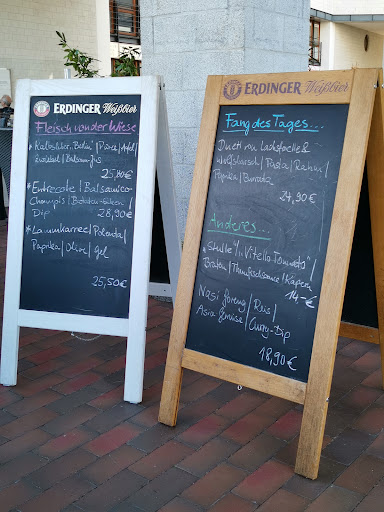 ERDINGER Weißbier
Fleisch von der Wiese
*Kalbsleber „Berlin" | Püree | Apfel
Zwiebel | Balsam-Jus
25,80€
*Entrecote | Balsamico
Champis | Bataten-
Dip 28,90€
*Lammkarree | Polenta |
Paprika | Olive | Gel
25,50€
ERDINGER Weißbier
Fang des Tages...
Duett von Lachsforelle &
Wolfsbarsch | Pasta | Rahm |
Paprika | Burrata
24,90€
Anderes...
*Stulle" | „Vitello Tonnato" |
Braten | Thunfischsauce | Kapern
14,-€
Nasi Goreng | Reis |
Asia Gemüse | Curry-Dip
18,90€